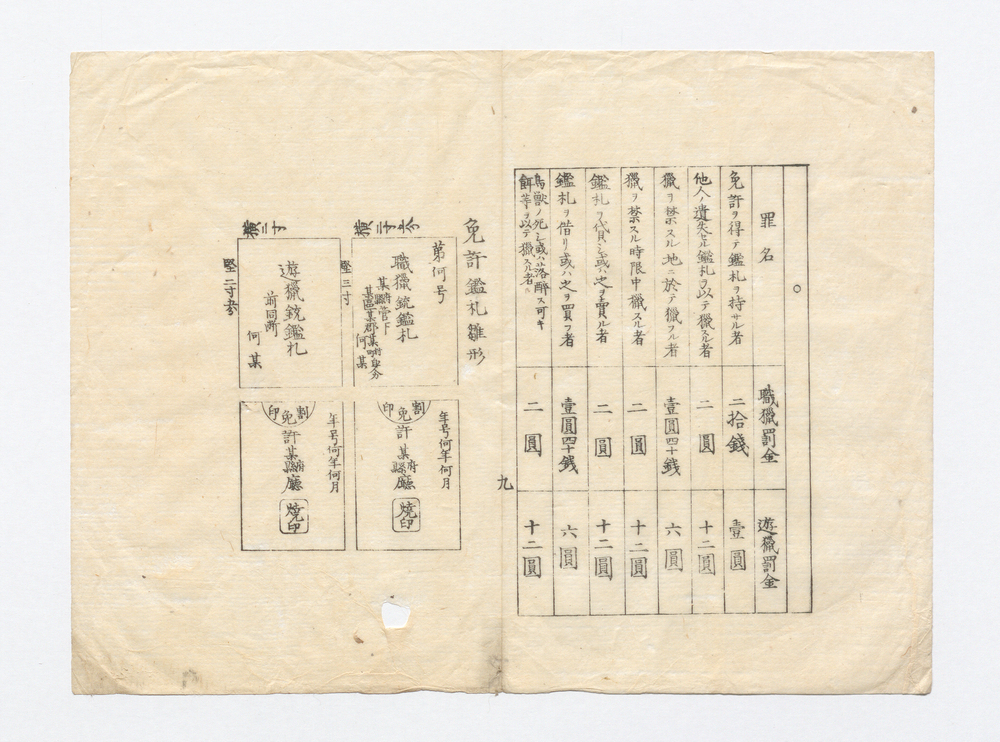 ○
罪名
職獵罰金
遊獵罰金
免許ヲ得テ鑑札ヲ持サル者
二拾錢
壹圓
他人ノ遺失セル鑑札ヲ以テ獵スル者
二圓
十二圓
獵ヲ禁スル地ニ於テ獵ヲル者
壹圓四十錢
六圓
獵ヲ禁スル時限中獵スル者
二圓
十二圓
鑑札ヲ貸シ或ハ之ヲ賣ル者
二圓
十二圓
鑑札ヲ借リ或ハ之ヲ買フ者
壹圓四十錢
六圓
鳥獸ノ死シ或ハ落醉ス可キ
餌等ヲ以テ獵スル者
二圓
十二圓
九
免許鑑札雛形
第何号
職獵銃鑑札
某府縣管下
某區某郡某町村身分
何某
竪三寸
年号何年何月
割印
免許
某府縣廳
燒印
横二寸
遊獵銃鑑札
前同断
何某
年号何年何月
割印
免許
某府縣廳
燒印